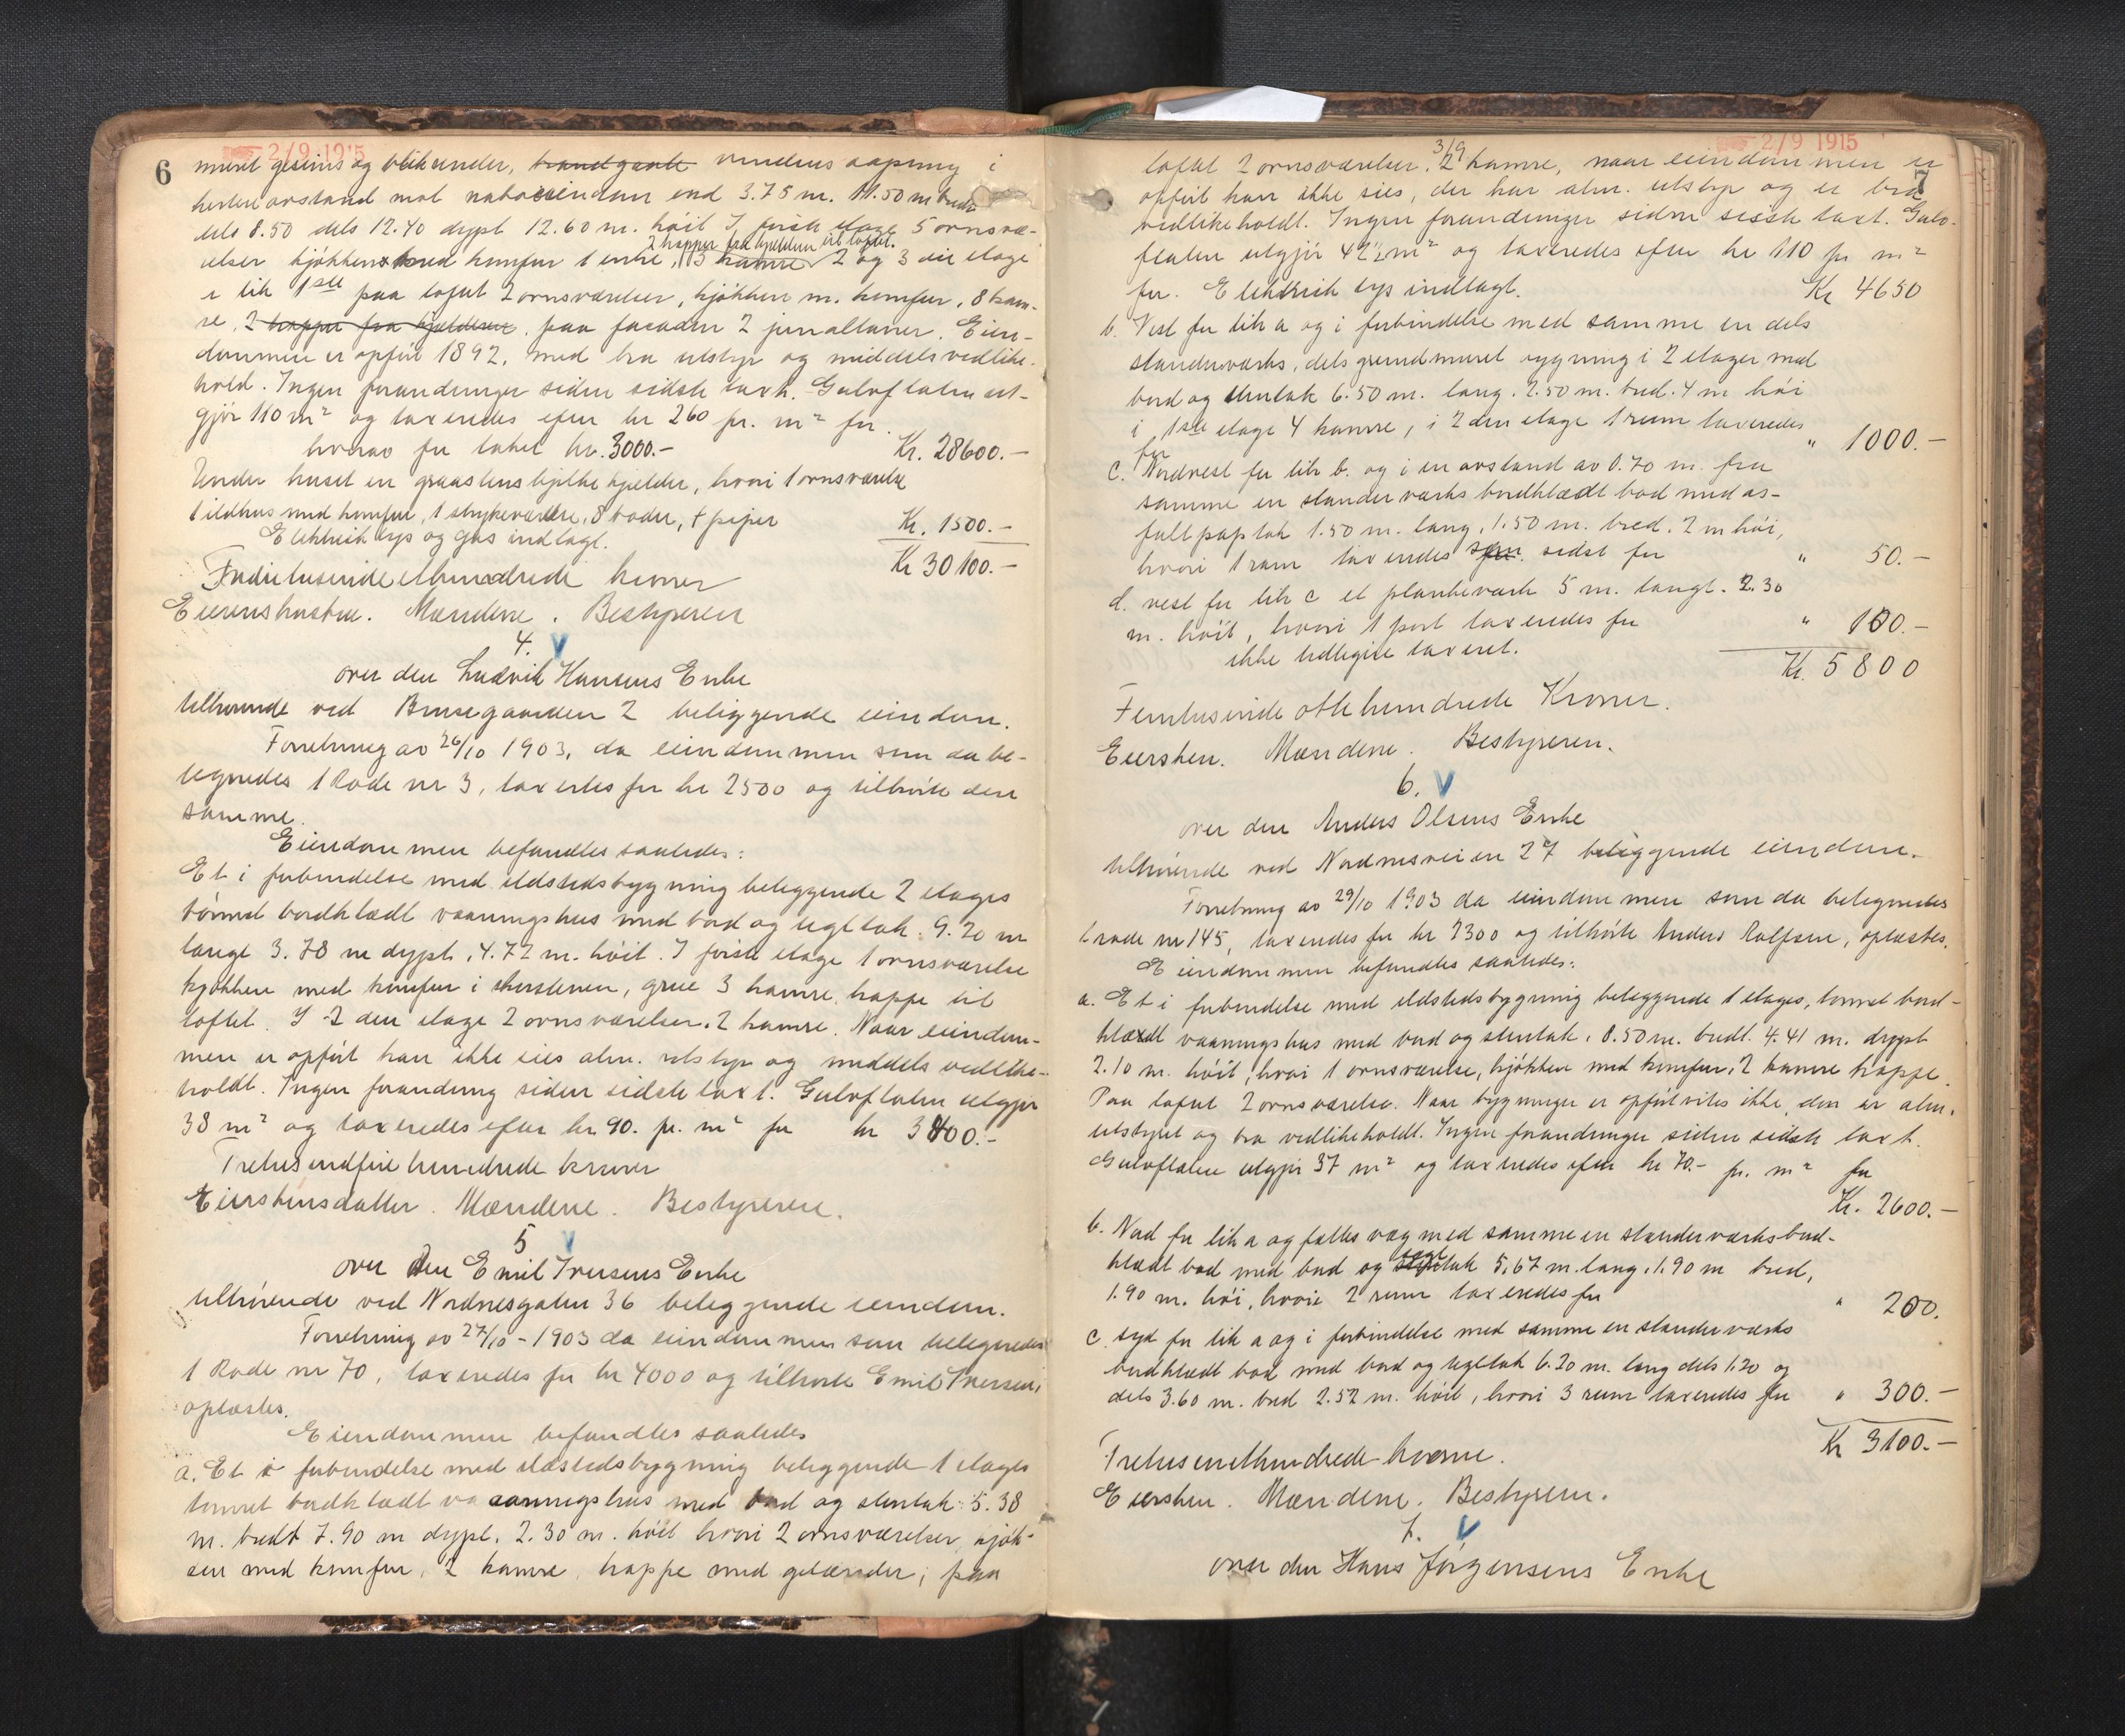 6
2/9 1915
muret gesims og blikrender, brandgavle vinduus aapning i
kortere avstand mot naboeiendom end 3.75 m. 11.50 m bredt
dels 8.50 dels 12.40 dypt 12.60 m. høit I første etage 5 ornsvæ-
2 trapper fra kjelderen til loftet.
relser kjøkken med komfur 1 entre, 3 kamre 2 og 3 die etage
e lik 1ste paa loftet 2 ornsværelser, kjøkken m. komfur, 8 kam-
re, 2 trapper fra kjælderen. paa facaden 2 jernaltaner. Eien-
dommen er opført 1892, med bra utstyr og middels vedlike-
hold. Ingen forandringer siden sidste taxt. Gulvflaten ut-
gjør 110 m² og taxeredes efter kr 260 pr. m² for
hvorav for taket kr. 3000.- Kr. 28600.-
Under huset en graastens kjelder, hvori 1 ornsværelse
1 ildhus med komfur, 1 strykeværelse, 8 boder, + piper Kr. 1500.-
Elektrisk lys og gas indlagt. Kr 30100.-
Trediutusindeethundrede kroner
Eierens hustru. Mændene. Bestyreren
4. V
over den Ludvik Hansens Enke
tilhørende ved Brusegaarden 2 beliggende eiendom.
Forretning av 26/10 1903, da eiendommen som da be-
tegnedes 1 Rode nr 3, taxertes for kr 2500 og tilhørte den
samme.
Eiendommen befandtes saaledes:
Et i forbindelse med ildstedsbygning beliggende 2 etages
tømret bordklædt vaaningshus med bord og tegltak. 9.20 m
langt 3.78 m dypt, 4.72 m. høit. I første etage 1 ornsværelse
kjøkken med komfur i skorstenen, grue 3 kamre, trappe til
loftet. I 2 den etage 2 ornsværelser. 2 kamre. Naar eiendom-
men er opført kan ikke sies alm. utstyr og middels vedlike-
holdt. Ingen forandring siden sidste taxt. Gulvflaten utgjør
38 m² og taxeredes efter kr. 90. pr. m² for kr 3400.-
Tretusindfirehundrede kroner
Eierskens datter. Mændene. Bestyreren.
5 V
over den Emil Iversens Enke
tilhørende ved Nordnesgaten 36 beliggende eiendom.
Forretning av 27/10 - 1903 da eiendommen som betegnedes
1 Rode nr 70, taxeredes for kr 4000 og tilhørte Emil Iversen,
oplæstes.
Eiendommen befandtes saaledes
a. Et i forbindelse med ildstedsbygning beliggende 1 etages
tømret bordklædt vaaningshus med bord og stentak 5.38
m. bredt 7.90 m dypt. 2.30 m. høit hvori 2 ornsværelser, kjøk-
ken med komfur, 2 kamre, trappe med gelænder; paa
2/9 1915
7
3/9
loftet 2 ornsværelser. 2 kamre, naar eiendommen er
opført kan ikke sies, der har alm. utstyr og er bra
vedlikeholdt. Ingen forandringer siden sidste taxt. Gulv-
flaten utgjør 42½ m² og taxeredes efter kr 110 pr m²
for. Elektrisk lys indlagt. Kr 4650
b. Vest for litr a og i forbindelse med samme en dels
standerværks, dels grundmuret bygning i 2 etager med
bord og stentak 6.50 m. lang. 2.50 m. bred. 4 m høi
i 1ste etage 4 kamre, i 2 den etage 1 rum taxeredes
for " 1000.-
c. Nordvest for litr b. og i en avstand av 0.70 m. fra
samme en standerværks bordklædt bod med as-
faltpaptak 1.50 m. lang, 1.50 m. bred. 2 m høi,
hvori 1 rum taxeredes som sidst for " 50.-
d. vest for litr c et plankeværk 5 m. langt. 2.30
m. høit, hvori 1 port taxeredes for " 100.-
ikke tidligere taxeret. Kr. 5800
Femtusinde otte hundrede Kroner.
Eiersken. Mændene. Bestyreren.
6. V
over den Anders Olsens Enke
tilhørende ved Nordnesveien 27 beliggende eiendom.
Forretning av 29/10 1903 da eiendommen som da betegnedes
1 rode nr 145, taxeredes for kr 2300 og tilhørte Anders Rolfsen, oplæstes.
Eiendommen befandtes saaledes:
a. Et i forbindelse med ildstedsbygning beliggende 1 etages, tømret bord-
klædt vaaningshus med bord og stentak. 8.50 m. bredt. 4.41 m. dypt
2.10 m. høit, hvori 1 ornsværelse, kjøkken med komfur, 2 kamre trappe.
Paa loftet 2 ornsværelse. Naar bygninger er opført vites ikke, den er alm.
utstyret og bra vedlikeholdt. Ingen forandringer siden sidste taxt.
Gulvflaten utgjør 37 m² og taxeredes efter kr 70.- pr. m² for
Kr. 2600.-
b. Nord for litr a og fælles væg med samme en standerværks bord-
tegl
klædt bod med bord og stentak 5.67 m. lang, 1.90 m bred,
1.90 m. høi, hvori 2 rum taxeredes for " 200.
c. syd for litr a og i forbindelse med samme en standerværks
bordklædt bod med bord og tegltak 6.20 m. lang dels 1.20 og
dels 3.60 m. bred 2.52 m. høit, hvori 3 rum taxeredes for " 300.-
Kr 3100.-
Tretusindethundrede kroner.
Eiersken. Mændene. Bestyreren.
7. V
over den Hans Jørgensens Enke